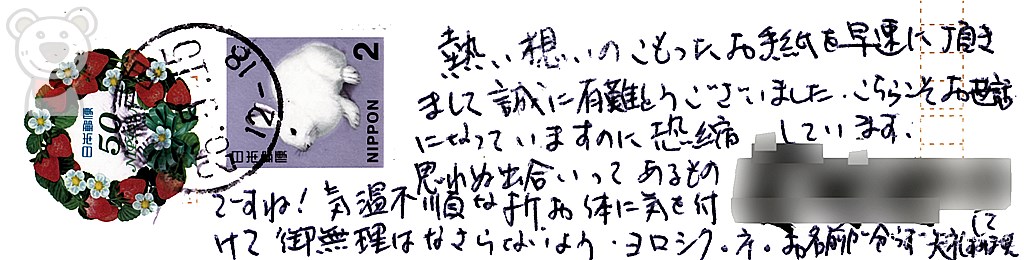 熱い想いのこもったお手紙を早速に頂き
まして誠に有難とうございました。こちらこそお世話
になっていますのに恐縮しています。
思わぬ出合いってあるもの
ですね!気温不順な折お体に気を付
けて御無理はなさらないよう・ヨロシク。ネ。お名前が分らず失礼
して
日本郵便
50
日本郵便
2
NIPPON
12-18